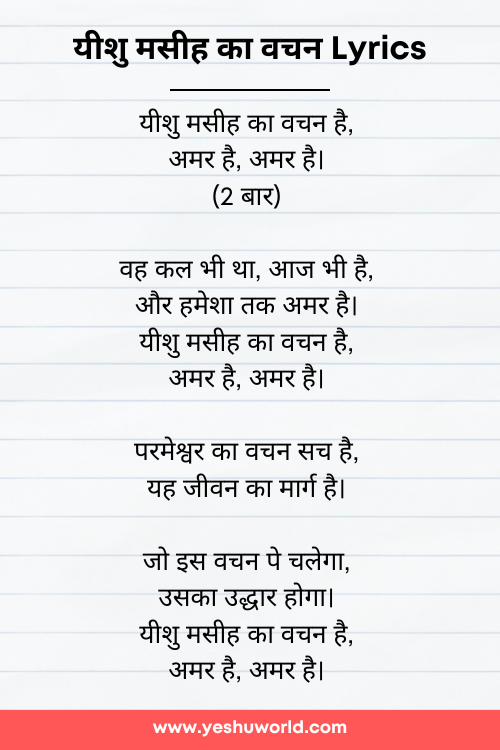 यीशु मसीह का वचन Lyrics
यीशु मसीह का वचन है,
अमर है, अमर है।
(2 बार)
वह कल भी था, आज भी है,
और हमेशा तक अमर है।
यीशु मसीह का वचन है,
अमर है, अमर है।
परमेश्वर का वचन सच है,
यह जीवन का मार्ग है।
जो इस वचन पे चलेगा,
उसका उद्धार होगा।
यीशु मसीह का वचन है,
अमर है, अमर है।
www.yeshuworld.com